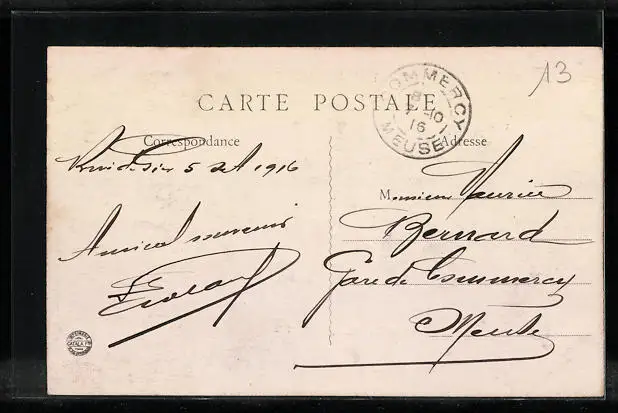 13
CARTE POSTALE
COMMERCY
8
-10
16
MEUSE
Correspondance
Adresse
5 1916
Monsieur Maurice
Bernard
Amical souvenir
Gare de Commercy
Meuse